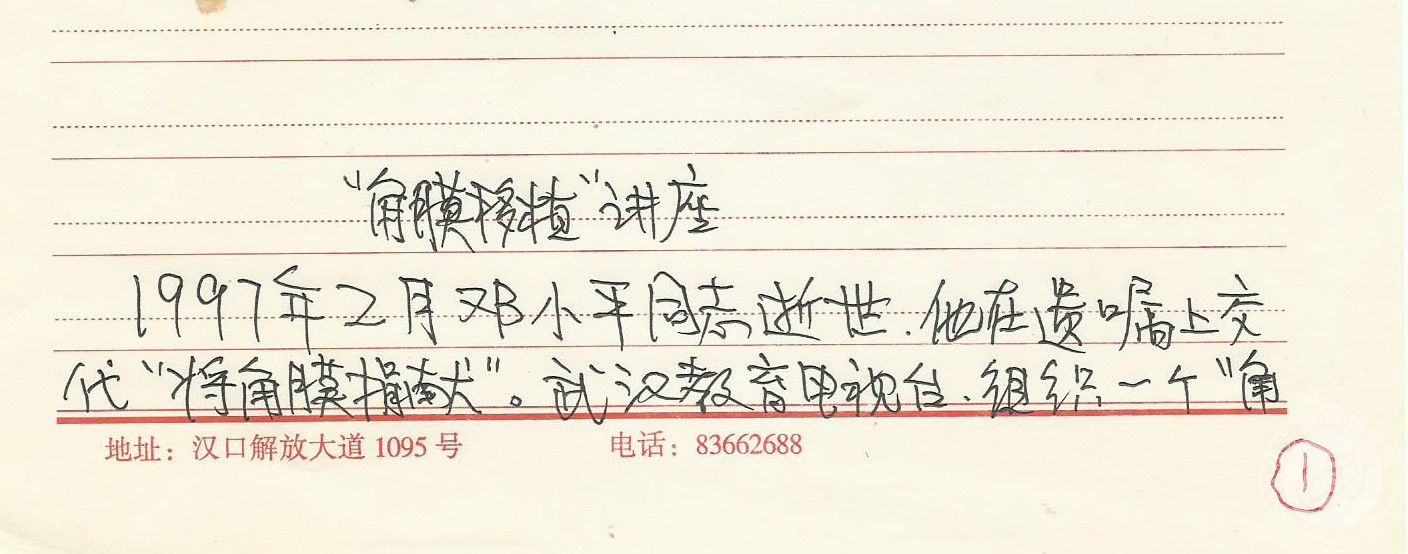 “角膜移植”讲座
1997年2月邓小平同志逝世.他在遗嘱上交
代“将角膜捐献”。武汉教育电视台.组织一个“角
地址：汉口解放大道1095号 电话：83662688
1